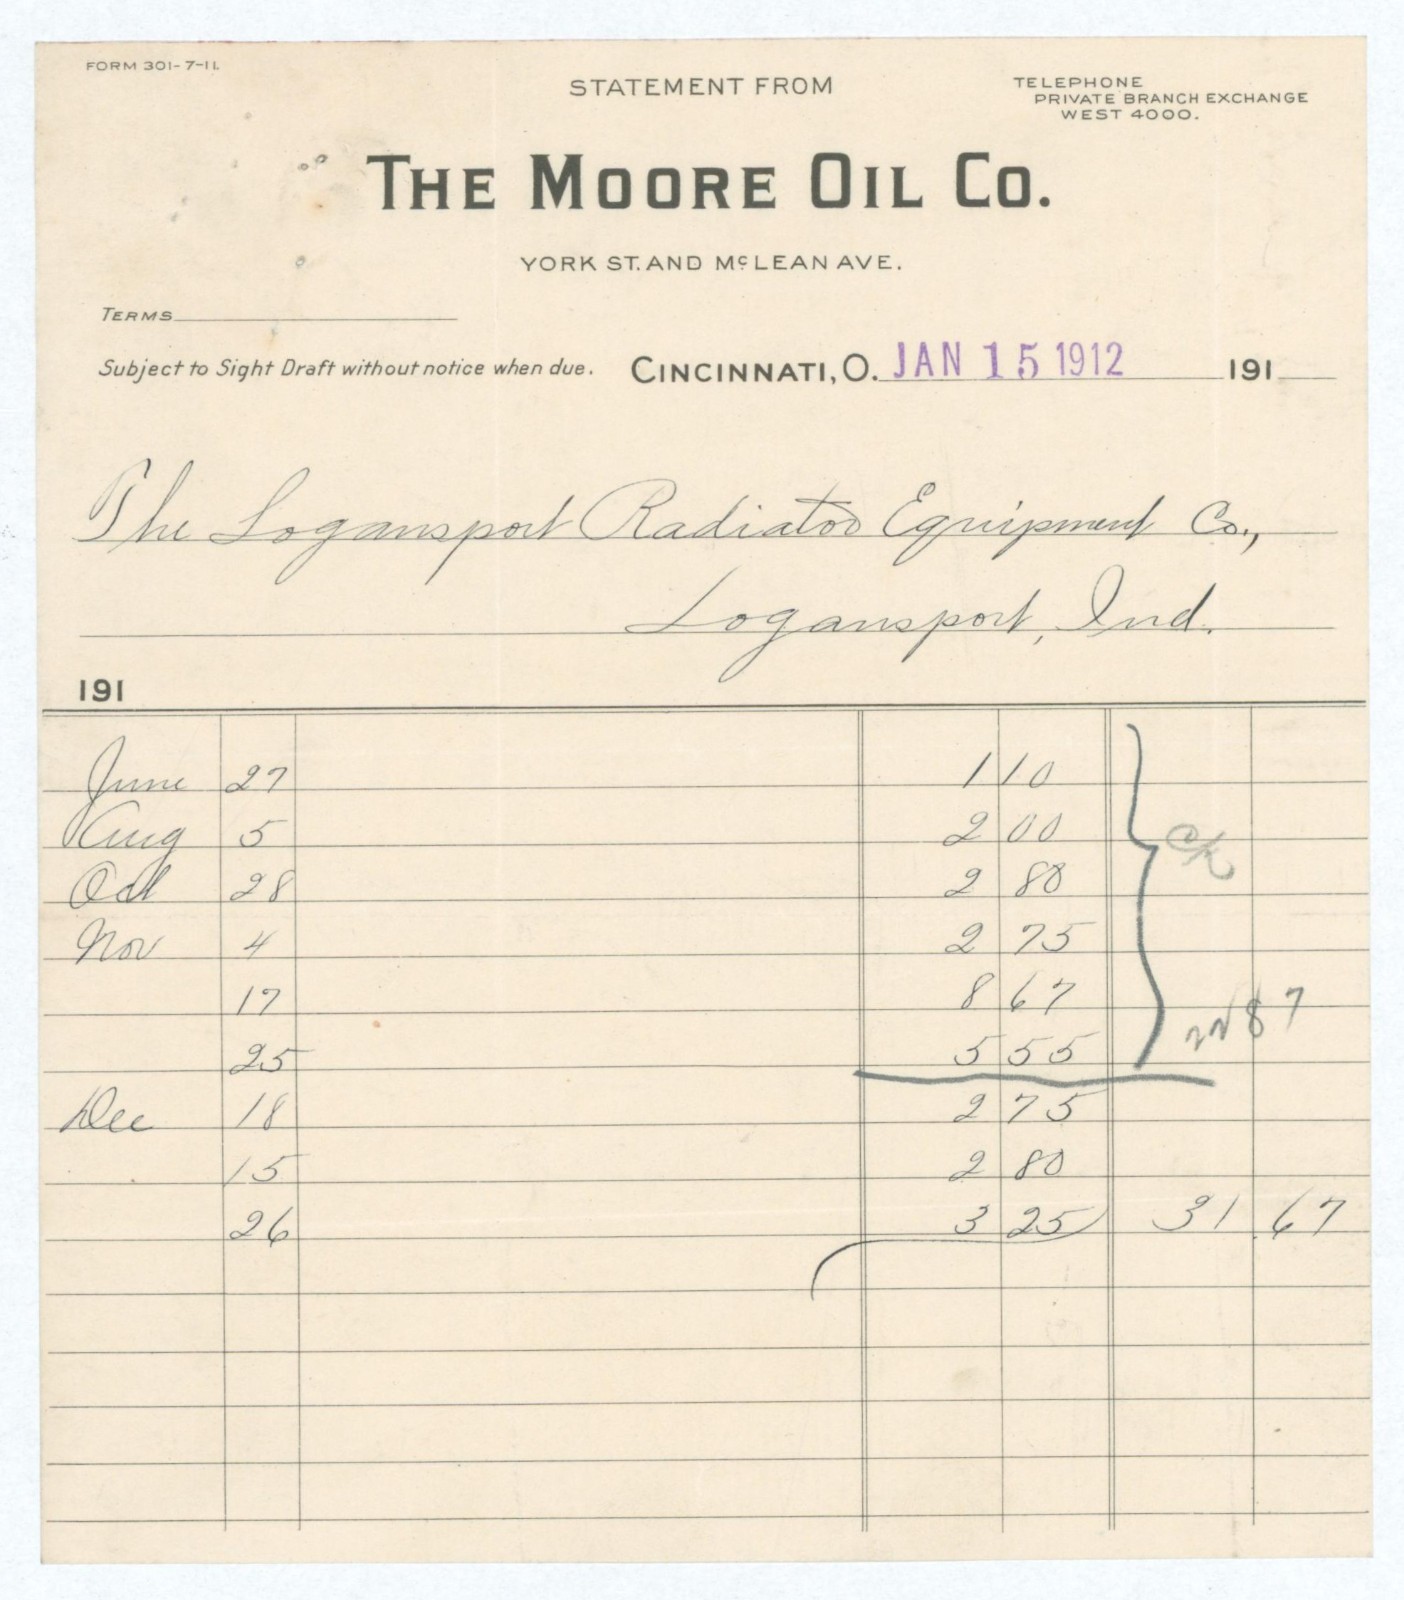 FORM 301-7-11.
STATEMENT FROM
TELEPHONE
PRIVATE BRANCH EXCHANGE
WEST 4000.
THE MOORE OIL CO.
YORK ST. AND McLEAN AVE.
TERMS
Subject to Sight Draft without notice when due.
CINCINNATI, O. JAN 15 1912 191
The Logansport Radiator Equipment Co.,
Logansport, Ind.
191
June 27 1 10
Aug 5 2 00
Oct 28 2 80
Nov 4 2 75
17 8 67
25 5 55
ck
22 87
Dec 18 2 75
15 2 80
26 3 25 31 67